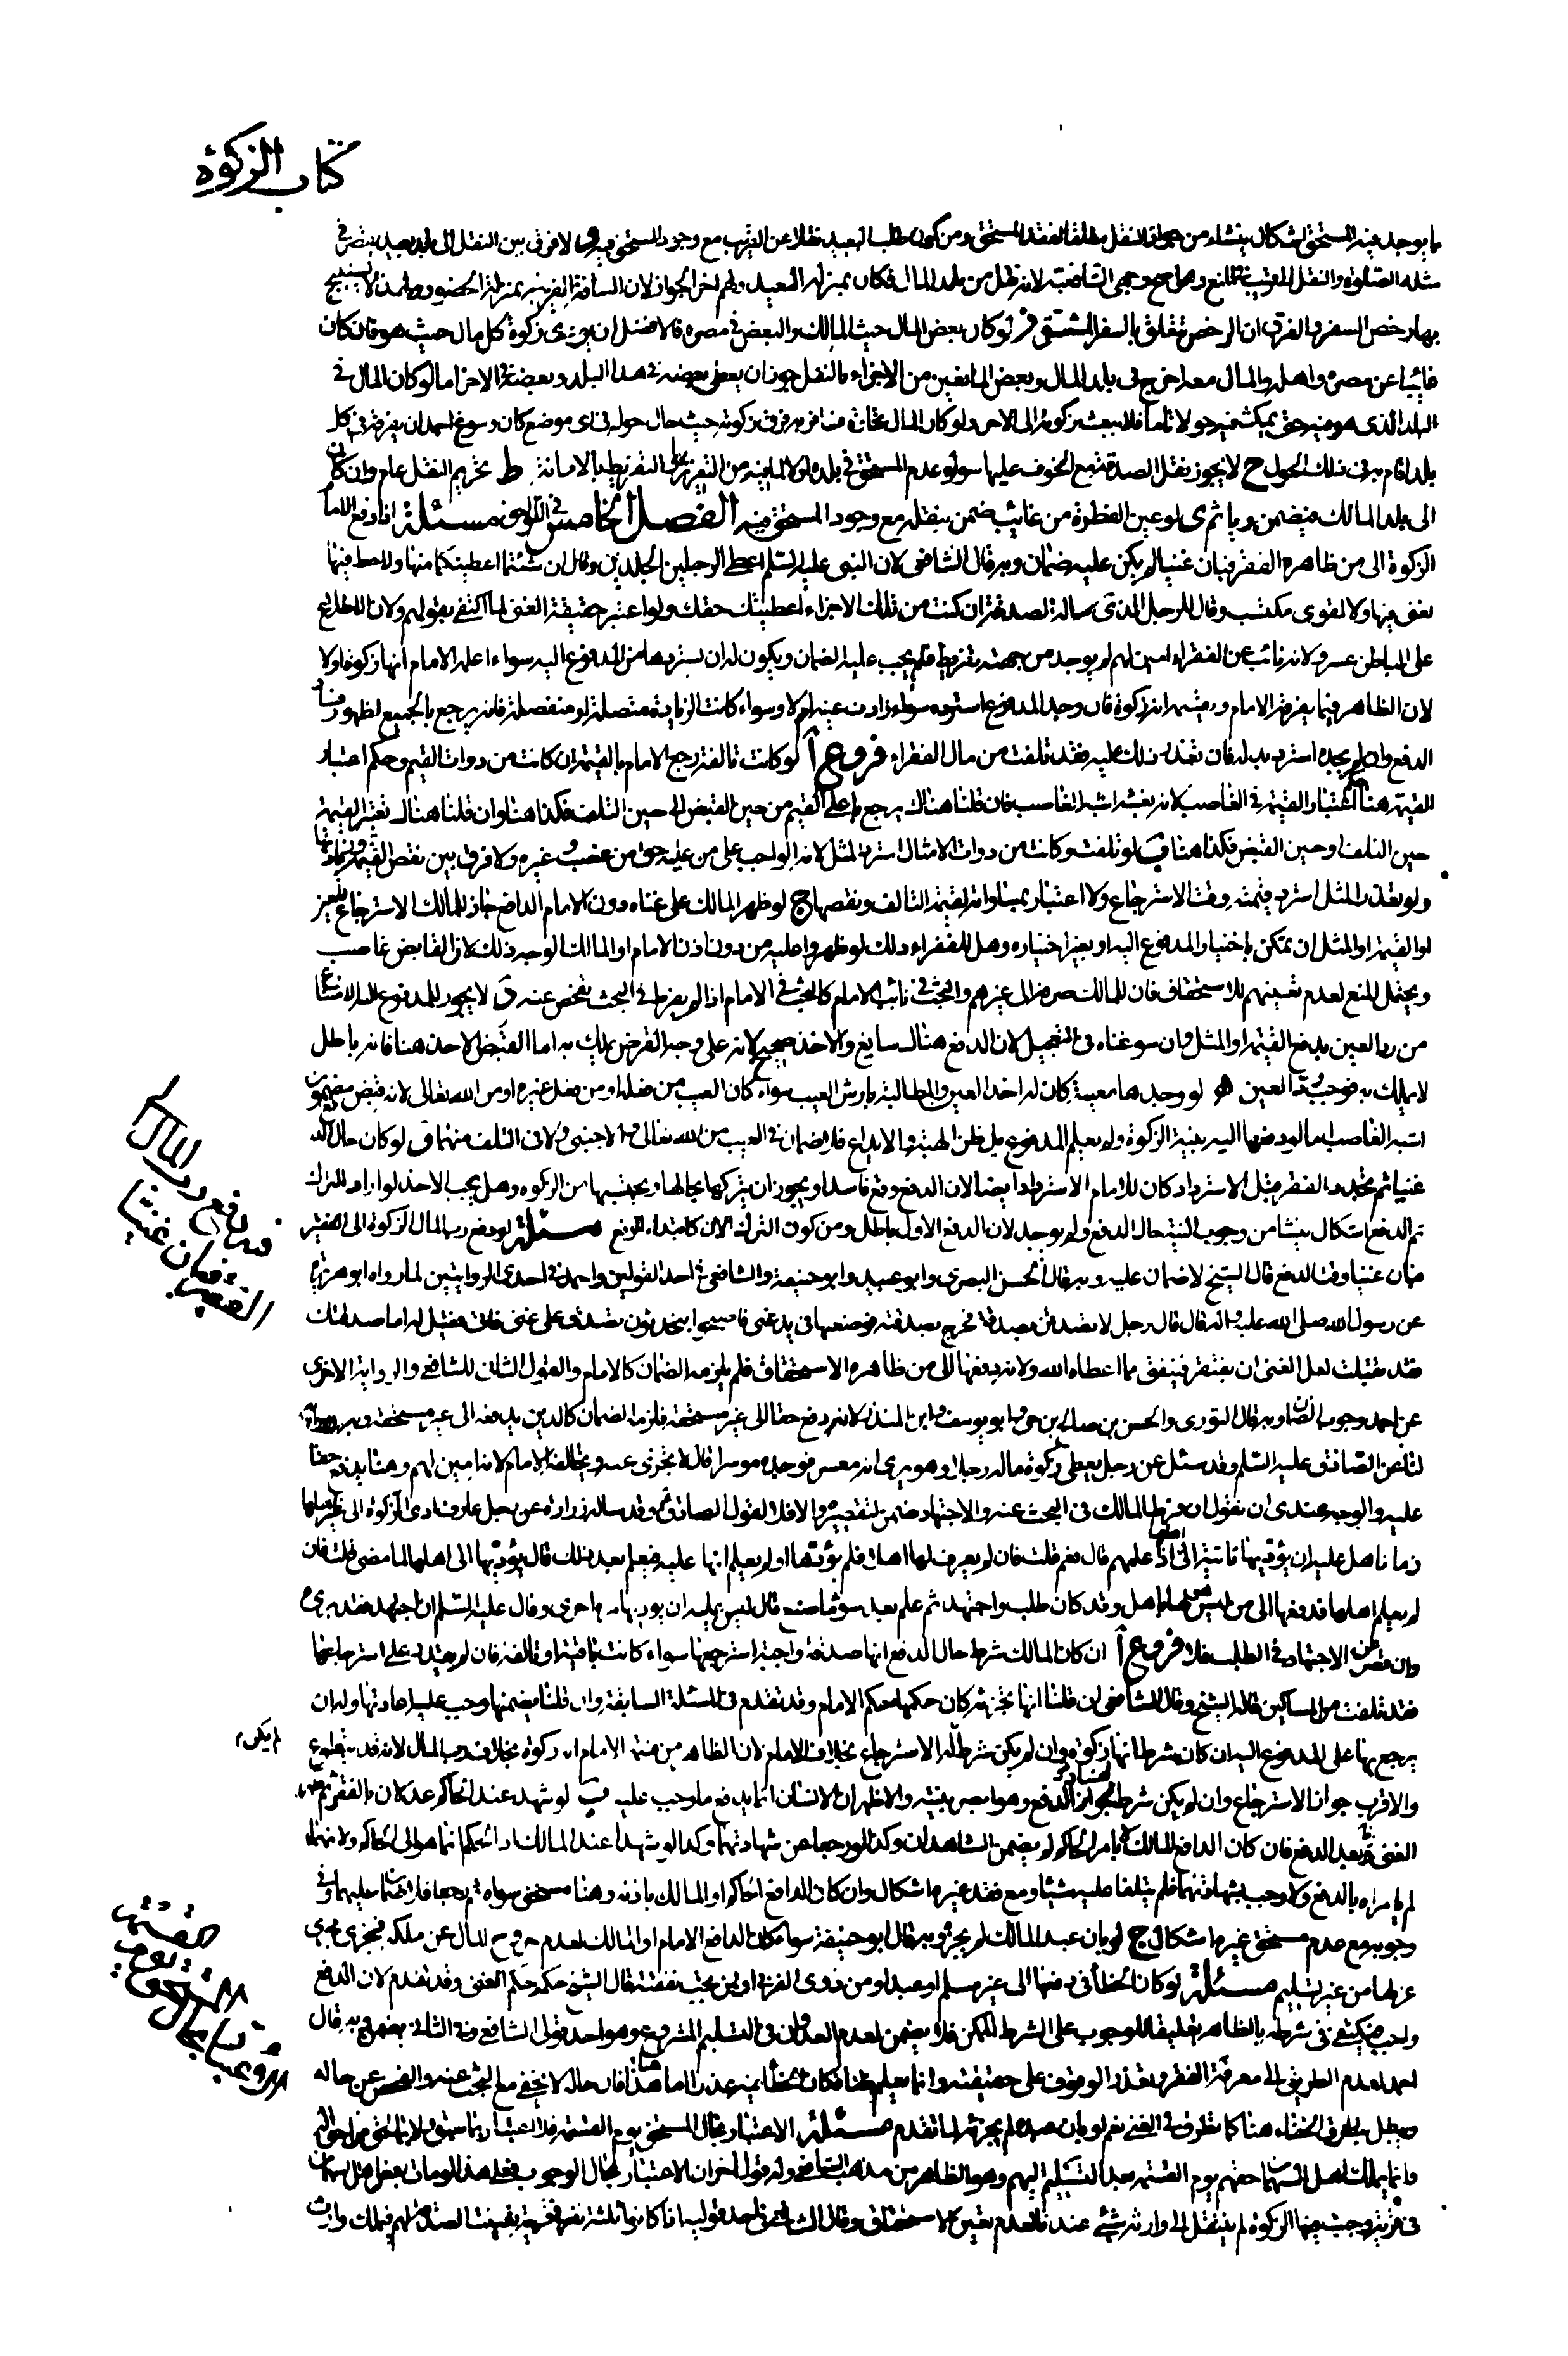 كتاب الزكوة
ما يوجد فيه المستحق اشكال ينشاء من جواز النقل مطلقا لفقد المستحق ومن كون طلب البعيد نقلا عن القريب مع وجود المستحق فيه و لا فرق بين النقل الى بلد بعيد يقصر في
مثله الصلوة والنقل الى قريب في المنع وهل اصح وجهي الشافعية لانه نقل من بلد المال فكان بمنزلة البعيد ولهم اخر الجواز لان المسافة القريبة بمنزلة الحضور ولهذا لا يستبيح
بها رخص السفر والفرق ان الرخص تتعلق بالسفر المشق ز لو كان بعض المال حيث المالك والبعض في مصره فالافضل ان يؤدى زكوة كل مال حيث هو فان كان
غائبا عن مصره واهله والمال معه اخرج في بلد المال وبعض المانعين من الاجزاء بالنقل جوز ان يعطى بعضه في هذا البلد وبعضه في الاخر اما لو كان المال في
البلد الذى هو فيه حتى يمكث فيه حولا تاما فلا يبعث بزكوته الى الاخر ولو كان المال تجارة يسافر به فرق زكوته حيث حال حوله في اى موضع كان وسوغ احمد ان يفرقه في كل
بلد اقام به في ذلك الحول ح لا يجوز نقل الصدقة مع الخوف عليها سواء عدم المستحق في بلده او لا لما فيه من التغرير والتفريط بالامانة ط تحريم النقل عام وان كان
الى بلد المالك فيضمن وياثم ى لو عين الفطرة من غائب ضمن بنقله مع وجود المستحق فيه الفصل الخامس في اللواحق مسئلة اذا دفع الامام
الزكوة الى من ظاهره الفقر فبان غنيا لم يكن عليه ضمان وبه قال الشافعي لان النبى عليه السلم اعطى الرجلين الجلدين وقال ان شئتما اعطيتكما منها ولا حظ فيها
لغنى فيها ولا لقوى مكتسب وقال للرجل الذى ساله الصدقة ان كنت من تلك الاجزاء اعطيتك حقك ولو اعتبر حقيقة الغنى لما اكتفى بقولهم ولان الاطلاع
على الباطن عسر ولانه نائب عن الفقراء امين لهم لم يوجد من جهته تفريط فلم يجب عليه الضمان ويكون له ان يستردها من المدفوع اليه سواء اعلمه الامام انها زكوة او لا
لان الظاهر فيما يفرقه الامام ويقسمه انه زكوة فان وجد المدفوع استرده سواء زادت عينه ام لا وسواء كانت الزيادة متصلة او منفصلة فانه يرجع بالجميع لظهور فساد
الدفع وان لم يجده استرد بدله فان تعذر ذلك عليه فقد تلفت من مال الفقراء فروع أ لو كانت تالفة رجع الامام بالقيمة ان كانت من ذوات القيم وحكم اعتبار
القيمة هنا حكم اعتبار القيمة في الغاصب لانه بغشه اشبه الغاصب فان قلنا هناك يرجع باعلى القيم من حين القبض الى حين التلف فكذا هنا وان قلنا هناك تعتبر القيمة
حين التلف او حين القبض فكذا هنا ب لو تلفت وكانت من ذوات الامثال استرد المثل لانه الواجب على من عليه حق من غصب وغيره ولا فرق بين نقص القيمة وزيادتها
ولو تعذر المثل استرد قيمته وقت الاسترجاع ولا اعتبار بمساواته لقيمة التالف ونقصها ج لو ظهر المالك على غناه دون الامام الدافع جاز للمالك الاسترجاع للعين
او القيمة او المثل ان تمكن باختيار المدفوع اليه او بغير اختياره وهل للفقراء ذلك لو ظهروا عليه من دون اذن الامام او المالك الوجه ذلك لان القابض غاصب
ويحتمل المنع لعدم تعينهم للاستحقاق فان للمالك صرفه الى غيرهم والبحث في نائب الامام كالبحث في الامام اذا لم يفرط في البحث بفحص عنه د لا يجوز للمدفوع اليه الامتناع
من رد العين بدفع القيمة او المثل وان سوغناه في التعجيل لان الدفع هناك سايغ والاخذ صحيح لانه على وجه القرض يملك به اما القبض للاخذ هنا فانه باطل
لا يملك به فوجب رد العين ه لو وجدها معيبة كان له اخذ العين والمطالبة بارش العيب سواء كان العيب من فعله او من فعل غيره او من الله تعالى لانه قبض مضمون
اشبه الغاصب اما لو دفعها اليه بنية الزكوة ولم يعلم المدفوع بل ظن الهبة والايداع فلا ضمان في العيب من الله تعالى ولا الاجنبي ولا في التلف منهما و لو كان حال الدفع
غنيا ثم تجدد الفقر قبل الاسترداد كان للامام الاسترداد ايضا لان الدفع وقع فاسدا ويجوز ان يتركها بحالها ويحتسبها من الزكوة وهل يجب الاخذ لو اراد الترك
ثم الدفع اشكال ينشا من وجوب النية حال الدفع ولم يوجد لان الدفع الاول باطل ومن كون الترك الان كابتداء الدفع مسئلة لو دفع رب المال الزكوة الى الفقير
فبان غنيا وقت الدفع قال الشيخ لا ضمان عليه وبه قال الحسن البصرى وابو عبيد وابو حنيفة والشافعي في احد القولين واحمد في احدى الروايتين لما رواه ابو هريرة
عن رسول الله صلى الله عليه واله قال قال رجل لاتصدقن بصدقة فخرج بصدقته فوضعها في يد غنى فاصبحوا يتحدثون تصدق على غنى فاتى فقيل له اما صدقتك
فقد تقبلت لعل الغنى ان يعتبر فينفق مما اعطاه الله ولانه دفعها الى من ظاهره الاستحقاق فلم يلزمه الضمان كالامام والقول الثانى للشافعي والرواية الاخرى
عن احمد وجوب الضمان وبه قال الثورى والحسن بن صالح بن حى وابو يوسف وابن المنذر لانه دفع حقا الى غير مستحقه فلزمه الضمان كالدين يدفعه الى غير مستحقه
لنا عن الصادق عليه السلم وقد سئل عن رجل يعطى زكوة ماله رجلا وهو يرى انه معسر فوجده موسرا قال لا تجزى عنه ويخالفه الامام لانه امين لهم وهنا يدفع حقا
عليه والوجه عندى ان نقول ان فرط المالك في البحث عنه والاجتهاد ضمن لتقصيره والا فلا لقول الصادق ع وقد ساله زرارة عن رجل عارف ادى الزكوة الى غير اهلها
زمانا هل عليه ان يؤديها ثانية الى اهلها اذا علمهم قال نعم قلت فان لم يعرف لها اهلا فلم يؤدها او لم يعلم انها عليه فعلم بعد ذلك قال يؤديها الى اهلها لما مضى قلت فان
لم يعلم اهلها فدفعها الى من ليس هو لها باهل وقد كان طلب واجتهد ثم علم بعد سوء ما صنع قال ليس عليه ان يؤديها مرة اخرى وقال عليه السلم ان اجتهد فقد برئ
وان قصر عن الاجتهاد في الطلب فلا فروع أ ان كان المالك شرط حال الدفع انها صدقة واجبة استرجعها سواء كانت باقية او تالفة فان لم يقدر على استرجاعها
فقد تلفت من المساكين قاله الشيخ وقال الشافعي ان قلنا انها تجزيه كان حكمها حكم الامام وقد تقدم في المسئلة السابقة وان قلنا يضمنها وجب عليه اعادتها وله ان
يرجع بها على المدفوع اليه ان كان شرط انها زكوة وان لم يكن شرط لم يكن له الاسترجاع بخلاف الامام لان الظاهر من قسمة الامام انه زكوة بخلاف رب المال لانه قد يتطوع
والاقرب جواز الاسترجاع وان لم يكن شرط لفساد الدفع وهو ابصر بنيته والاظهر ان الانسان انما يدفع ما وجب عليه ب لو شهد عند الحاكم عدلان بالفقر ثم ظهر
الغنى بعد الدفع فان كان الدافع المالك لا بامر الحاكم لم يضمن الشاهدان وكذا لو رجعا عن شهادتهما وكذا لو شهدا عند المالك اذ الحكم انما هو الى الحاكم ولانهما
لم يامراه بالدفع ولا وجب بشهادتهما فلم يتلفا عليه شيئا ومع فقد غيرهما اشكال وان كان الدافع الحاكم او المالك باذنه وهنا مستحق سواه ثم رجعا فلا ضمان عليهما وفي
وجوبه مع عدم مستحق غيره اشكال ج لو بان عبد المالك لم يجزه وبه قال ابو حنيفة سواء كان الدافع الامام او المالك لعدم خروج المال عن ملكه فجرى مجرى
عزلها من غير تسليم مسئلة لو كان الخطأ في دفعها الى غير مسلم او عبد او من ذوى القربى او ممن تجب نفقته قال الشيخ حكمه حكم الغنى وقد تقدم لان الدفع
واجب فيكتفى في شرطه بالظاهر تعليقا للوجوب على الشرط الممكن فلا يضمن لعدم العدوان في التسليم المشروع وهو احد قولى الشافعي وفي الثانى يضمن وبه قال
احمد لعدم الطريق الى معرفة الفقر وتعذر الوقوف على حقيقته وانما يعلم ظنا فكان الخطأ فيه عذرا اما هنا فان حاله لا يخفى مع البحث عنه والفحص عن حاله
ويبطل بطرق الخفاء هنا كما تطرق في الغنى نعم لو بان عبده لم يجزئه لما تقدم مسئلة الاعتبار بحال المستحق يوم القسمة فلا اعتبار بما سبق ولا بما لحق من احوالهم
وانما يملك اهل السهمان حقهم يوم القسمة بعد التسليم اليهم وهو الظاهر من مذهب الشافعي وله قول اخر ان الاعتبار بحال الوجوب فعلى هذا لو مات بعض اهل السهمان
في قرية وجبت فيها الزكوة لم ينتقل الى وارثه شيئ عندنا لعدم تعين الاستحقاق وقال الشافعي في احد قوليه اذا كانوا ثلثة نفر في قرية تعينت الصدقة لهم فيملك وارث
فيما لو دفع رب المال
الى الفقير فبان غنيا
لم يكن